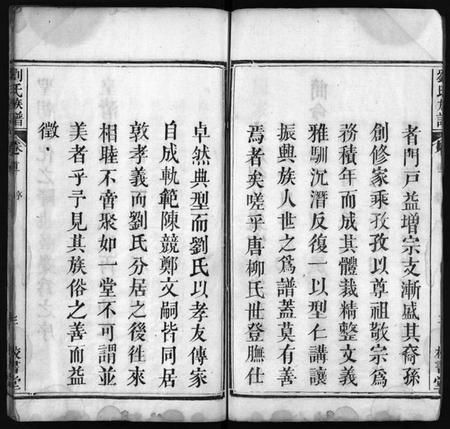 者門戸益增宗支漸盛其裔孫
創修家乘孜孜以尊祖敬宗爲
務積年而成其體裁精整文義
雅馴沉潛反復一以型仁講讓
振興族人世之爲譜蓋莫有善
焉者矣嗟乎唐柳氏世登膴仕
卓然典型而劉氏以孝友傳家
自成軌範陳競鄭文嗣皆同居
敦孝義而劉氏分居之後徃來
相睦不啻聚如一堂不可謂並
美者乎予見其族俗之善而益
徵
劉氏族譜
卷首
序
三
校書堂